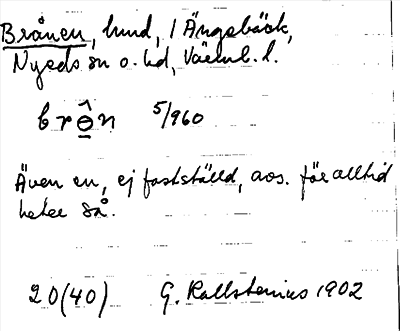 Brånen, hund, i Ängsbäck,
Nyeds sn o. hd, Värml. l.
brɵ̂n 5/960
Även en, ej fastställd, avs. för alltid
heter så.
20(40) G. Kallstenius 1902